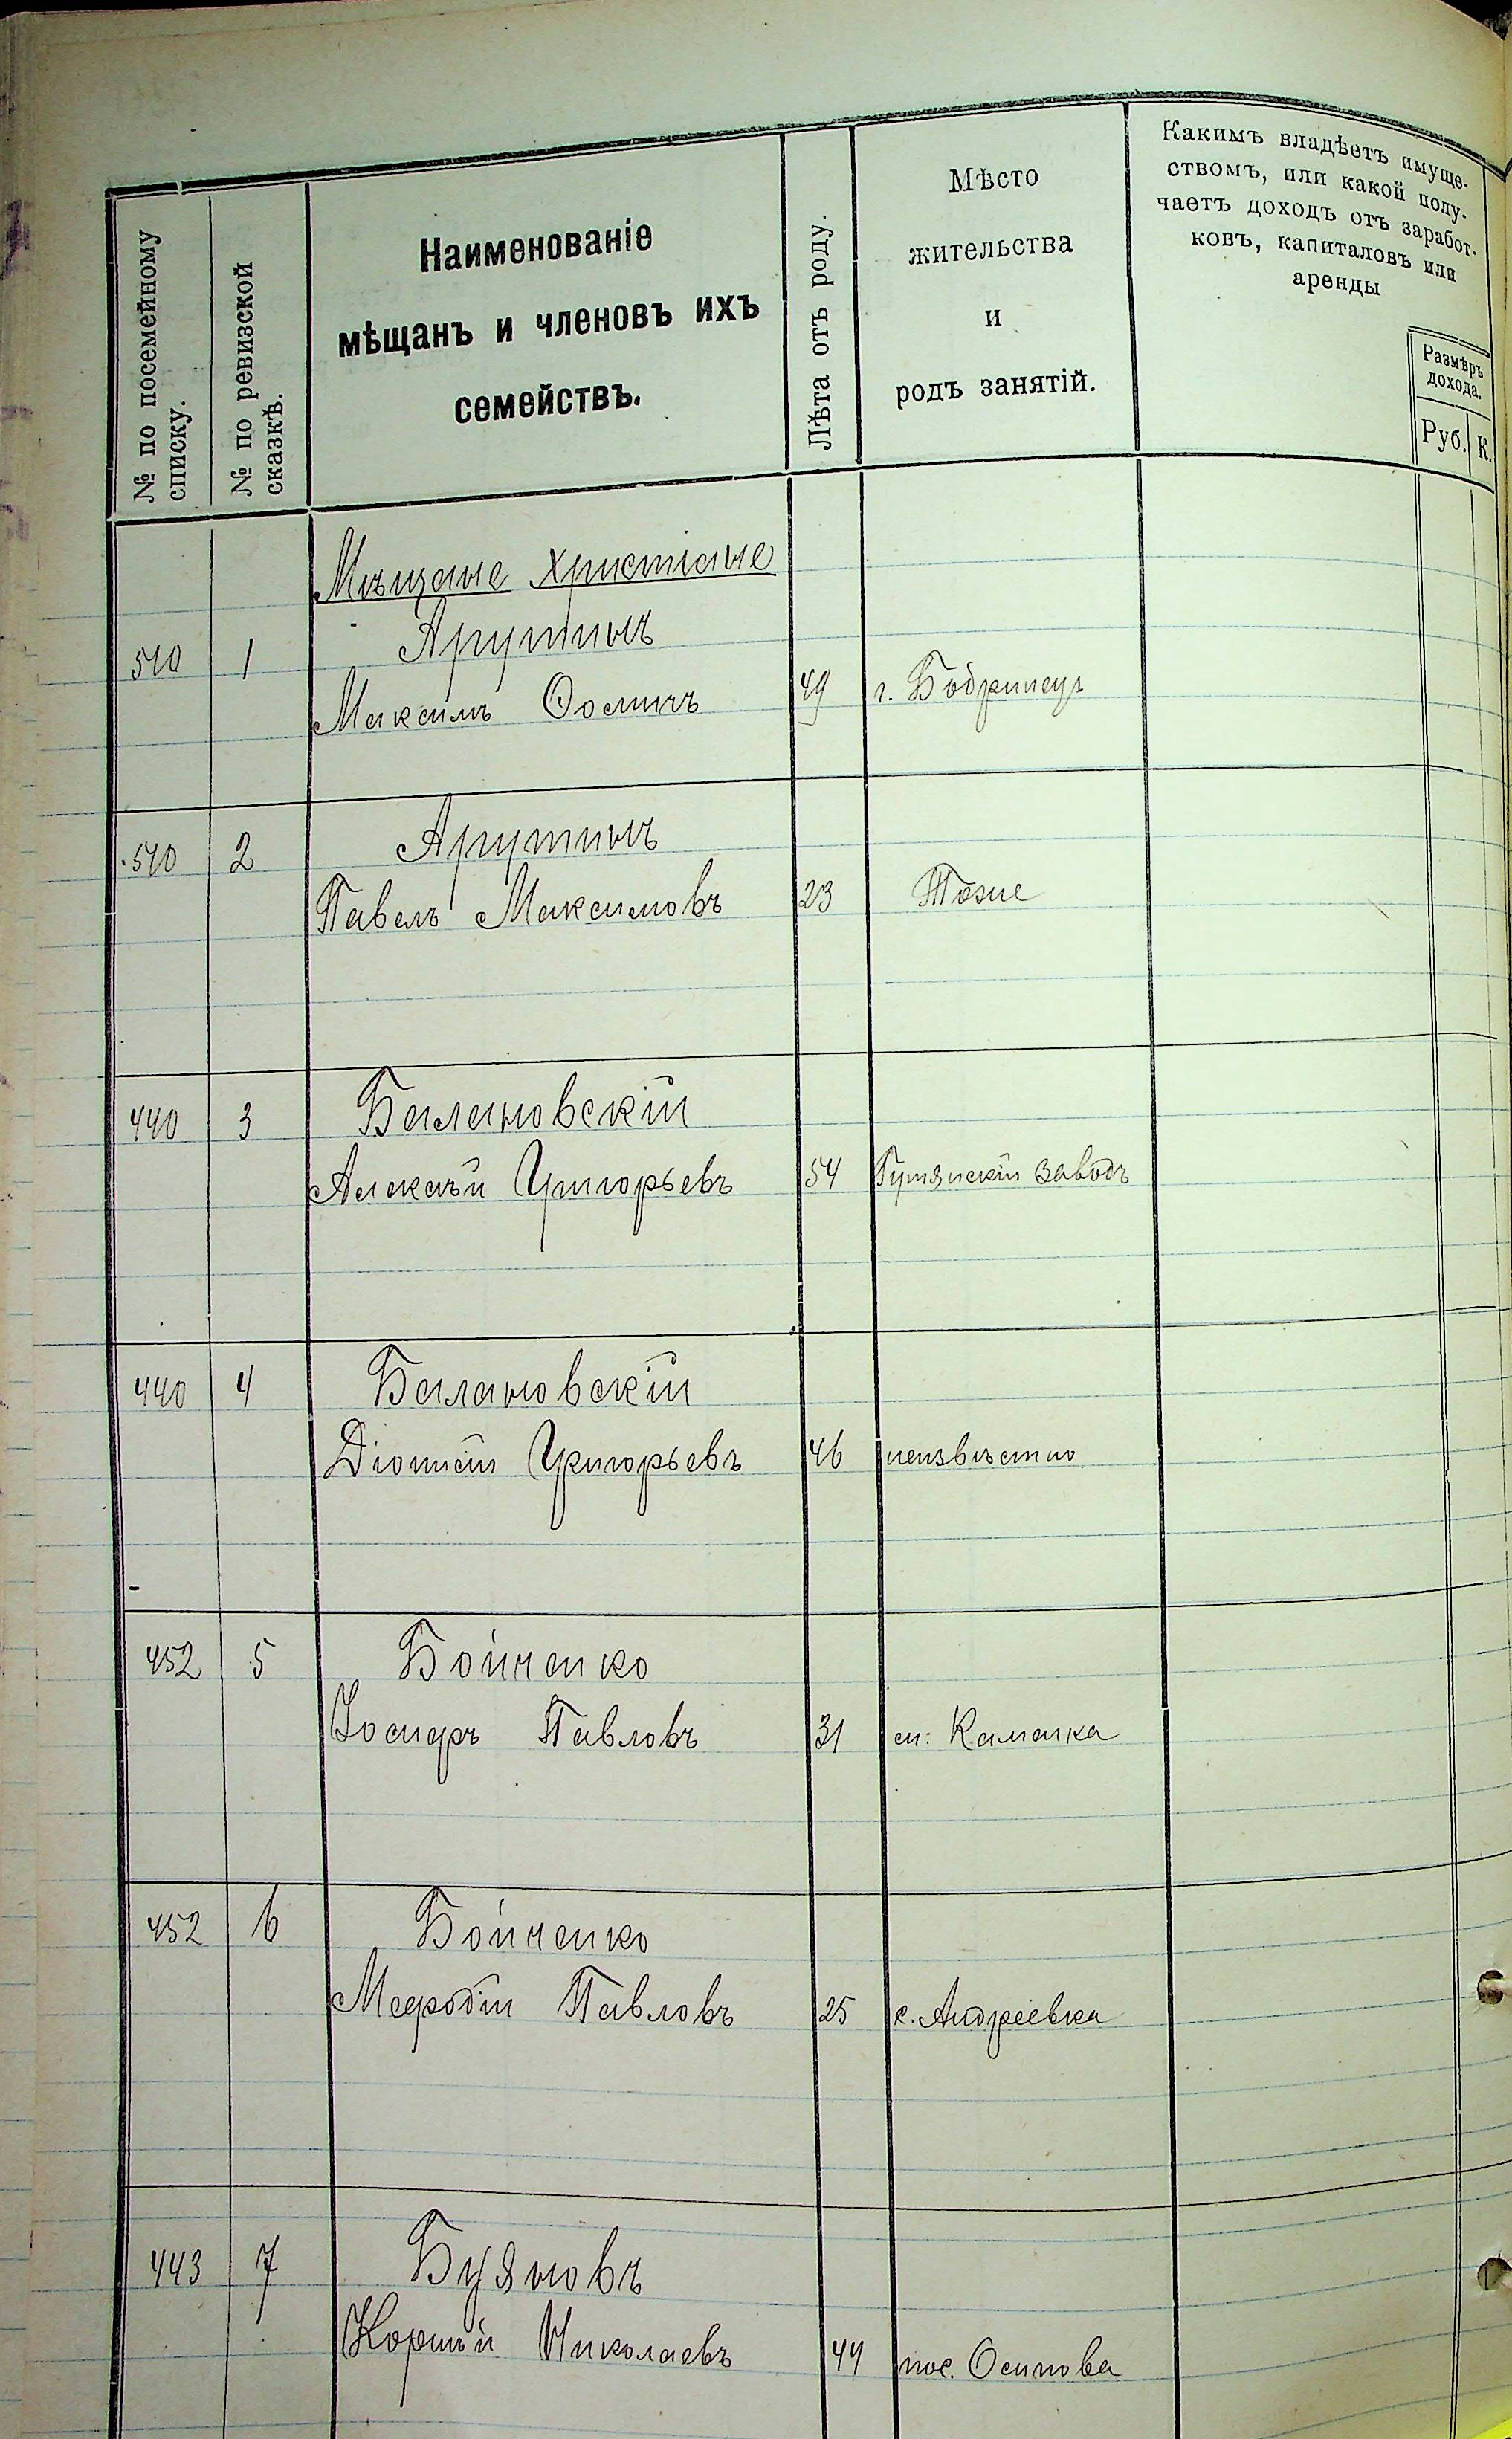 № по посемейному
списку.
№ по ревизской
сказкѣ.
Наименованіе
мѣщанъ и членовъ ихъ
семействъ.
Лѣта отъ роду.
Мѣсто
жительства
и
родъ занятій.
Какимъ владѣетъ имуще-
ствомъ, или какой полу-
чаетъ доходъ отъ заработ-
ковъ, капиталовъ или
аренды
Размѣръ
дохода.
Руб. К.
Мѣщане Христіане
510 1 Арутинъ
Максимъ 49 г. Бобринецъ
510 2 Арутинъ
Павелъ Максимовъ 23 Тоже
440 3 Балановскій
Алексѣй Григорьевъ 54 заводъ
440 4 Балановскій
Діонисій Григорьевъ 46 неизвѣстно
452 5 Бойченко
Іосифъ Павловъ 31 Каменка
452 6 Бойченко
Мефодій Павловъ 25 с. Андреевка
443 7 Буяновъ
Корнѣй Николаевъ 44 пос. Осипова